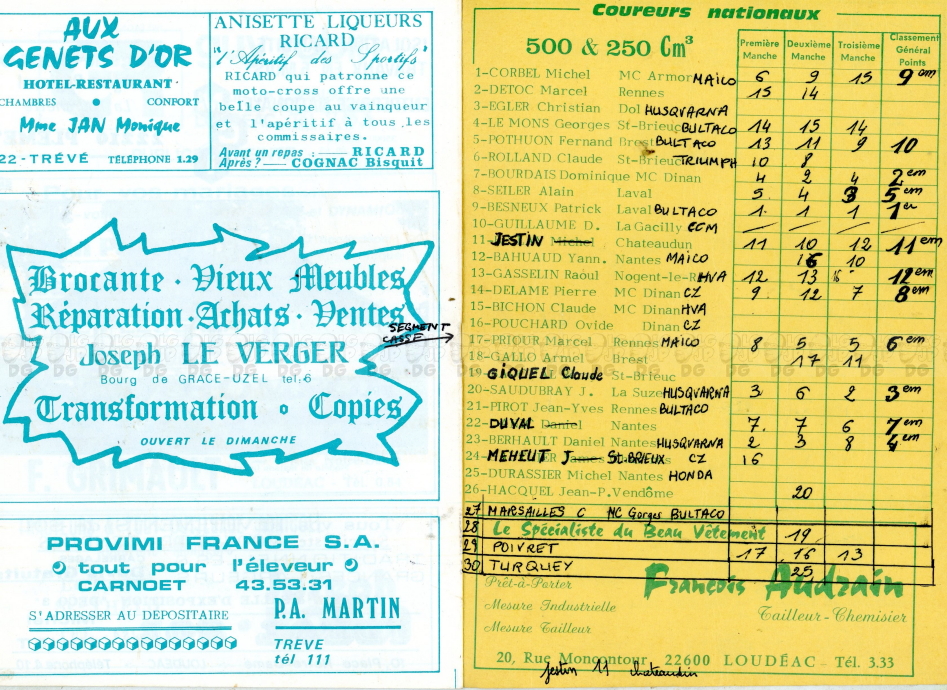 AUX
GENETS D'OR
HOTEL-RESTAURANT
CHAMBRES • CONFORT
Mme JAN Monique
22-TRÉVÉ TÉLÉPHONE 1.29
ANISETTE LIQUEURS
RICARD
"l'Apéritif des Sportifs"
RICARD qui patronne ce
moto-cross offre une
belle coupe au vainqueur
et l'apéritif à tous les
commissaires.
Avant un repas : RICARD
Après ? COGNAC Bisquit
Brocante · Vieux Meubles
Réparation · Achats · Ventes
Joseph LE VERGER
Bourg de GRACE-UZEL tel. 6
Transformation o Copies
OUVERT LE DIMANCHE
PROVIMI FRANCE S.A.
tout pour l'éleveur
CARNOET 43.53.31
S'ADRESSER AU DEPOSITAIRE
P.A. MARTIN
TREVE
tél 111
SEGMENT
CASSE
Coureurs nationaux
500 & 250 Cm³
Première Manche Deuxième Manche Troisième Manche Classement Général Points
1-CORBEL Michel MC Armor MAICO 6 9 15 9em
2-DETOC Marcel Rennes 15 14
3-EGLER Christian Dol HUSQVARNA
4-LE MONS Georges St-Brieuc BULTACO 14 15 14
5-POTHUON Fernand Brest BULTACO 13 11 9 10
6-ROLLAND Claude St-Brieuc TRIUMPH 10 8
7-BOURDAIS Dominique MC Dinan 4 2 4 2em
8-SEILER Alain Laval 5 4 3 5em
9-BESNEUX Patrick Laval BULTACO 1 1 1 1er
10-GUILLAUME D. La Gacilly CCM
11-JESTIN Michel Chateaudun 11 10 12 11em
12-BAHUAUD Yann. Nantes MAICO 16 10
13-GASSELIN Raoul Nogent-le-R HVA 12 13 12em
14-DELAME Pierre MC Dinan CZ 9 12 7 8em
15-BICHON Claude MC Dinan HVA
16-POUCHARD Ovide Dinan CZ
17-PRIOUR Marcel Rennes MAICO 8 5 5 6em
18-GALLO Armel Brest 17 11
19-GIQUEL Claude St-Brieuc
20-SAUDUBRAY J. La Suze HUSQVARNA 3 6 2 3em
21-PIROT Jean-Yves Rennes BULTACO
22-DUVAL Daniel Nantes 7 7 6 7em
23-BERHAULT Daniel Nantes HUSQVARNA 2 3 8 4em
24-MEHEUT J St-BRIEUX CZ 16
25-DURASSIER Michel Nantes HONDA
26-HACQUEL Jean-P. Vendôme 20
27 MARSAILLES C MC Gorges BULTACO
28 Le Spécialiste du Beau Vêtement 19
29 POIVRET 17 16 13
30 TURQUEY 25
François Audrain
Prêt-à-Porter
Mesure Industrielle
Tailleur-Chemisier
Mesure Tailleur
20, Rue Moncontour 22600 LOUDÉAC - Tél. 3.33
jestin 11 chateaudun